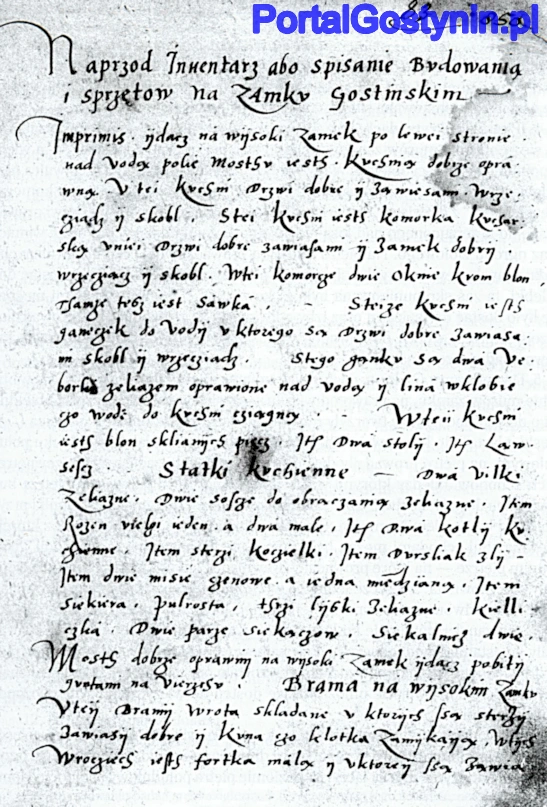 PortalGostynin.pl
88
Naprzod Inwentarz abo spisanie Bvdowania
i sprzętow na Zamkv Gostinskim
Imprimis ydącz na wysoki Zamek po lewei stronie
nad vodą polie mosthv iesth kvchnia dobrze opra
wna. V tei kvchni Drzwi dobre y zawiesami wrze
cziądz y skobl. Stei kvchni iesth komorka kvchar
ska vniei Drzwi dobre zawiasami y Zamek dobry
wrzecziącz y skobl. Wtei komorcze dwie oknie krom blon
Tamze tesz iest ławka. Steize kvchni iesth
ganeczek do vody v ktorego są Drzwi dobre zawiasa
m skobl y wrzecziadz. Stego gankv są dwa ve
borki zeliazem oprawione nad vodą y lina wklobie
czo wodę do kvchni cziągną. Wteii kvchni
iesth blon sklianych pięcz. Itē Dwa stoly. Itē Law
Statki kvchienne Dwa vilki
zeliazne. Dwie do obraczania zeliazne. Item
Rozen vielgi ieden a dwa male. Itē Dwa kotly kv
chienne. Item sterzi koczielki. Item Dvrsliak zly
Item dwie misie czenowe a iedna miedziana. Item
siekiera, pulrosta, trzi lyski zeliazne. kielli
czka. Dwie parze siekaczow. Siekalnicz dwie.
Mosth dobrze oprawny na wysoki Zamek ydącz pobity
gontami na vierzchv. Brama na wysokim Zamkv
Vteii Bramy wrota skladane v ktorych ssą sterzy
zawiasy dobre y kvna czo klotka zamykaią. Wtych
wrocziech iesth fortka mala y vktorey ssą zawia